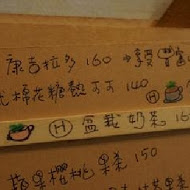 康吉拉多 160
棉花糖熱可可 140
Ⓗ 盆栽奶茶 16
蘋果櫻桃果茶 150